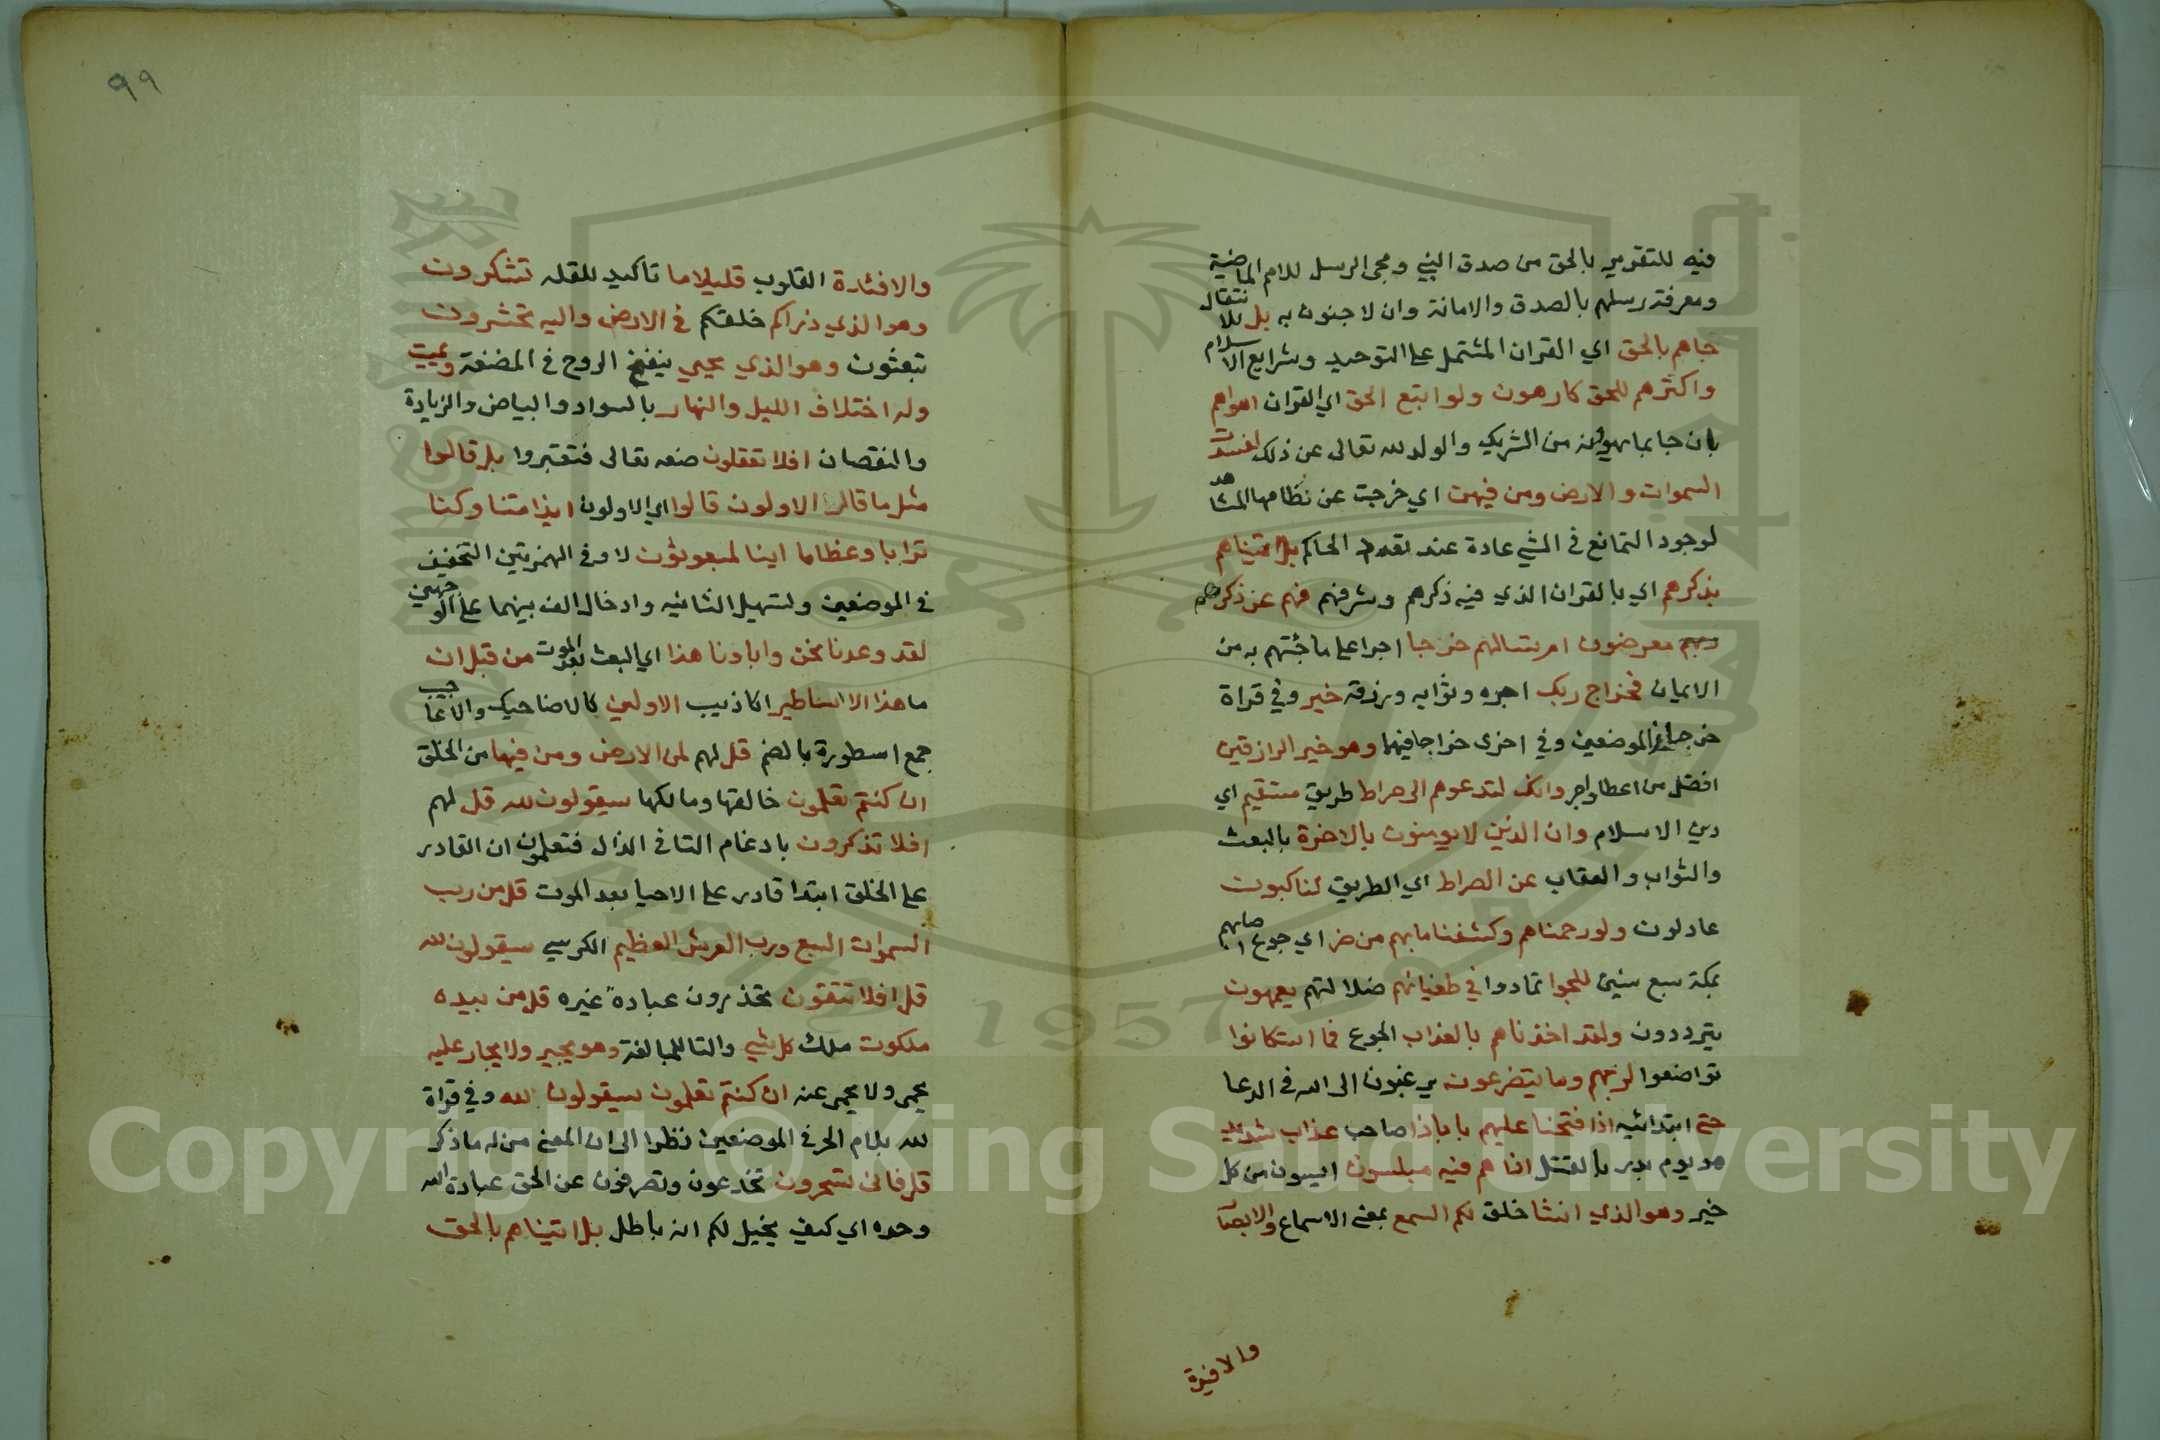 فيه للتقرير بالحق من صدق النبي ومجى الرسل للامم الماضية
ومعرفة رسلهم بالصدق والامانة وان لا جنون به بل للانتقال
جاهم بالحق اي القران المشتمل على التوحيد وشرايع الاسلام
واكثرهم للحق كارهون ولو اتبع الحق اي القران اهواهم
بان جا بما يهوونه من الشريك والولد لله تعالى عن ذلك لفسدت
السموات والارض ومن فيهن اي خرجت عن نظامها المشاهد
لوجود التمانع في الشي عادة عند تعدد الحاكم بل اتيناهم
بذكرهم اي بالقران الذي فيه ذكرهم وشرفهم فهم عن ذكرهم
معرضون ام تسالهم خرجا اجرا على ما جئتهم به من
الايمان فخراج ربك اجره وثوابه ورزقه خير وفي قراة
خرجا في الموضعين وفي اخرى خراجا فيهما وهو خير الرازقين
افضل من اعطا واجر وانك لتدعوهم الى صراط طريق مستقيم اي
دين الاسلام وان الذين لا يومنون بالاخرة بالبعث
والثواب والعقاب عن الصراط اي الطريق لناكبون
عادلون ولو رحمناهم وكشفنا ما بهم من ضر اي جوع اصابهم
بمكة سبع سنين للجوا تمادوا في طغيانهم ضلالتهم يعمهون
يترددون ولقد اخذناهم بالعذاب الجوع فما استكانوا
تواضعوا لربهم وما يتضرعون يرغبون الى الله في الدعا
حتى ابتدائيه اذا فتحنا عليهم بابا ذا صاحب عذاب شديد
هو يوم بدر بالقتل اذا هم فيه مبلسون ايسون من كل
خير وهو الذي انشا خلق لكم السمع بمعنى الاسماع والابصا
والافئدة
٩٩
والافئدة القلوب قليلا ما تاكيد للقله تشكرون
وهو الذي ذراكم خلقكم في الارض واليه تحشرون
تبعثون وهو الذي يحيي ينفخ الروح في المضغة ويميت
وله اختلاف الليل والنهار بالسواد والبياض والزيادة
والنقصان افلا تعقلون صنعه تعالى فتعتبروا بل قالوا
مثل ما قال الاولون قالوا اي الاولون ايذا متنا وكنا
ترابا وعظاما اينا لمبعوثون لا وفي الهمزتين التحقيق
في الموضعين وتسهيل الثانيه وادخال الف بينهما على الوجهين
لقد وعدنا نحن واباونا هذا اي البعث بعد الموت من قبل ان
ما هذا الا اساطير اكاذيب الاولين كالاضاحيك والاعاجيب
جمع اسطورة بالضم قل لهم لمن الارض ومن فيها من الخلق
ان كنتم تعلمون خالقها ومالكها سيقولون لله قل لهم
افلا تذكرون بادغام التا في الذال فتعلمون ان القادر
على الخلق ابتدا قادر على الاحيا بعد الموت قل من رب
السموات السبع ورب العرش العظيم الكرسي سيقولون لله
قل افلا تتقون تحذرون عبادة غيره قل من بيده
ملكوت ملك كل شي والتا للمبالغة وهو يجير ولا يجار عليه
يحمي ولا يحمى عنه ان كنتم تعلمون سيقولون الله وفي قراة
لله بلام الجر في الموضعين نظرا الى ان المعنى من له ما ذكر
قل فانى تسحرون تخدعون وتصرفون عن الحق عبادة الله
وحده اي كيف يخيل لكم انه باطل بل اتيناهم بالحق
Copyright © King Saud University
1957